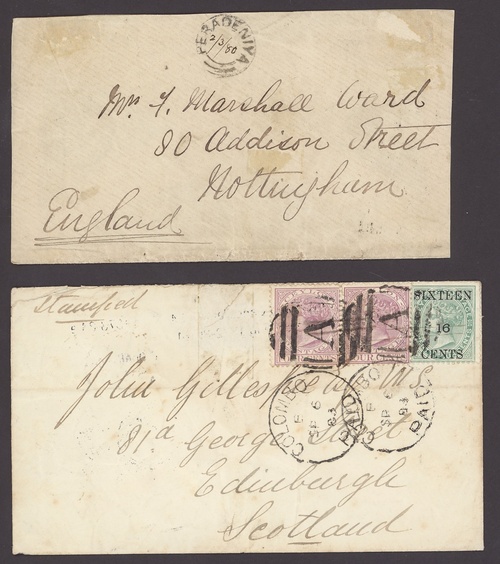 PERADENIYA
2/3/80
Mr. F. Marshall Ward
80 Addison Street
Nottingham
England
Stamped
SIXTEEN
16
CENTS
A
A
COLOMBO
SP 6
83
COLOMBO
PAID
SP 6
83
John Gillespie W.S.
81a George Street
Edinburgh
Scotland